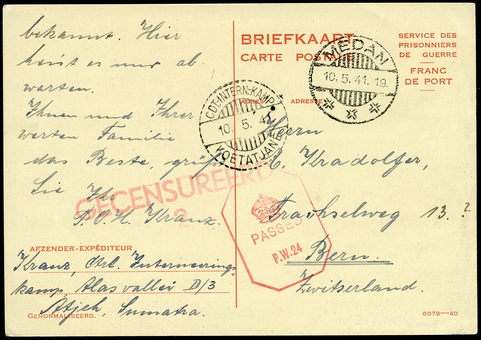 bekannt. Hier
heist es nur ab
warten.
Ihnen und Ihrer
werten Familie
das Beste, grüsst
Sie Ihr
P.O.H. Kranz.
AFZENDER-EXPÉDITEUR
Kranz, Interneerings
kamp, Alas vallei D/3
Atjeh, Sumatra.
GENORMALISEERD.
BRIEFKAART
CARTE POSTALE
SERVICE DES
PRISONNIERS
DE GUERRE
FRANC
DE PORT
ADRES ADRESSE
MEDAN
10.5.41.19.
CDT-INTERN: KAMP
10. 5. 41
KOETATJANE
GECENSUREERD
2
PASSED
P.W.24
Herrn
Kradolfer,
Trachselweg 13. ?
Bern.
Zwitserland.
6078—40